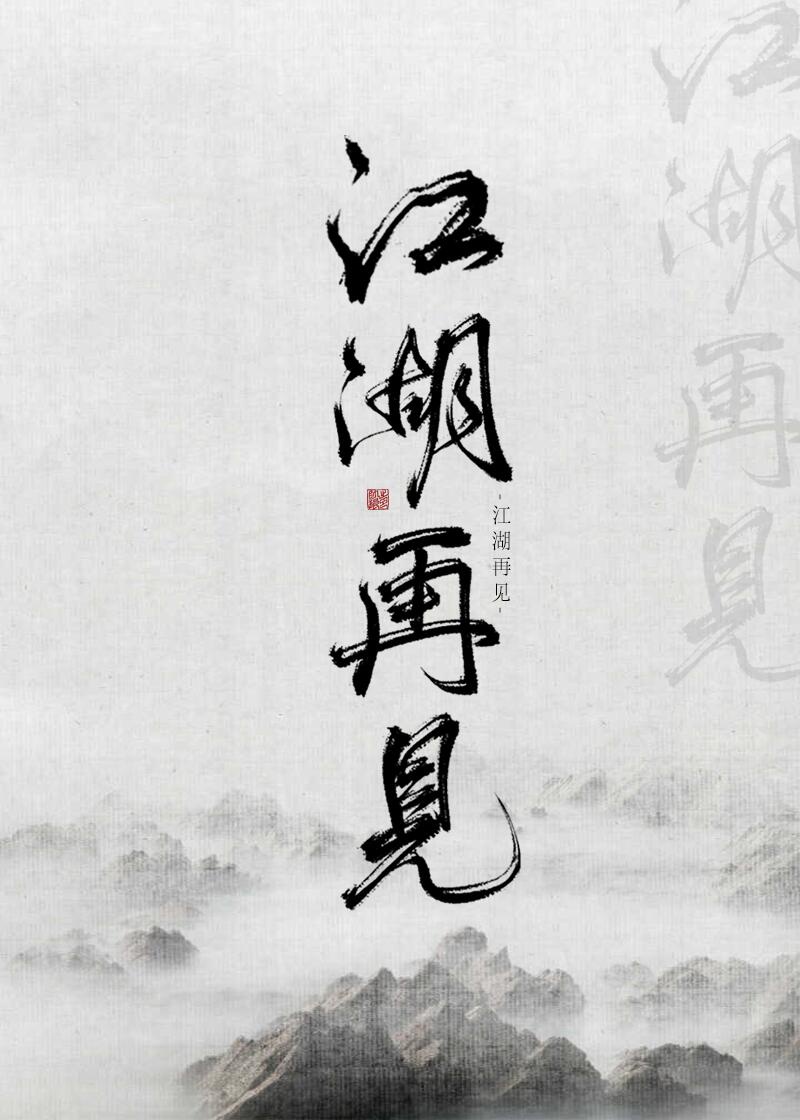 江湖再見
江湖再见
江湖再見